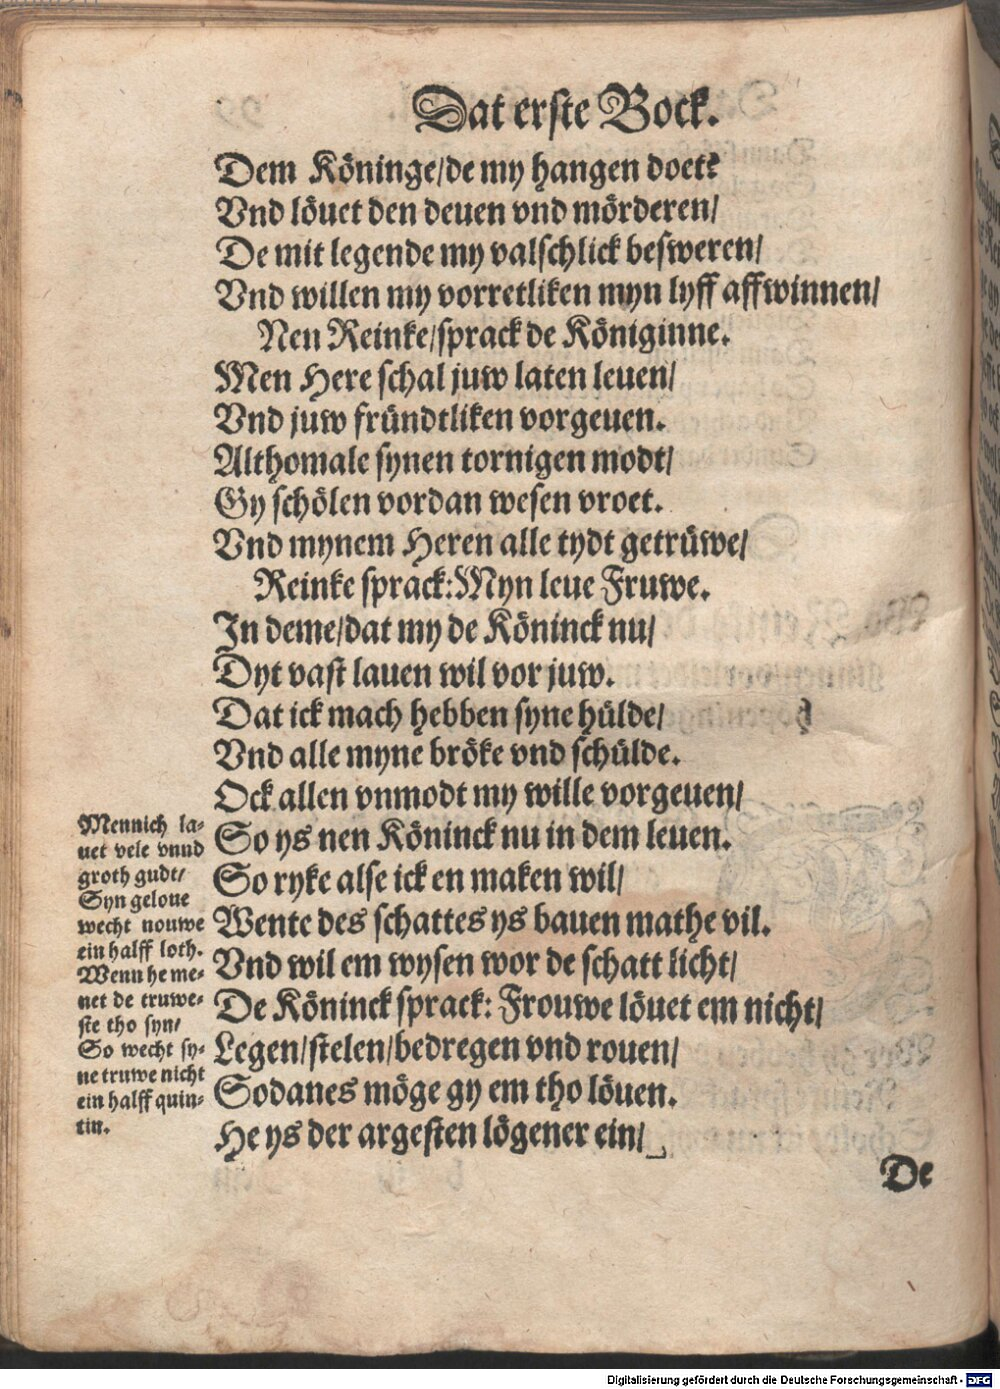 Dat erste Bock.
Dem Köninge/de my hangen doet?
Vnd löuet den deuen vnd mörderen/
De mit legende my valschlick besweren/
Vnd willen my vorretliken myn lyff affwinnen/
Nen Reinke/sprack de Königinne.
Men Here schal juw laten leuen/
Vnd juw fründtliken vorgeuen.
Althomale synen tornigen modt/
Gy schölen vordan wesen vroet.
Vnd mynem Heren alle tydt getrüwe/
Reinke sprack: Myn leue Fruwe.
In deme/dat my de Köninck nu/
Dyt vast lauen wil vor juw.
Dat ick mach hebben syne hülde/
Vnd alle myne bröke vnd schülde.
Ock allen vnmodt my wille vorgeuen/
So ys nen Köninck nu in dem leuen.
So ryke alse ick en maken wil/
Wente des schattes ys bauen mathe vil.
Vnd wil em wysen wor de schatt licht/
De Köninck sprack: Frouwe löuet em nicht/
Legen/stelen/bedregen vnd rouen/
Sodanes möge gy em tho löuen.
He ys der argesten lögener ein/
Mennich la-
uet vele vnnd
groth gudt/
Syn geloue
wecht nouwe
ein halff loth.
Wenn he me-
net de truwe-
ste tho syn/
So wecht sy-
ne truwe nicht
ein halff quin-
tin.
De
Digitalisierung gefördert durch die Deutsche Forschungsgemeinschaft - DFG